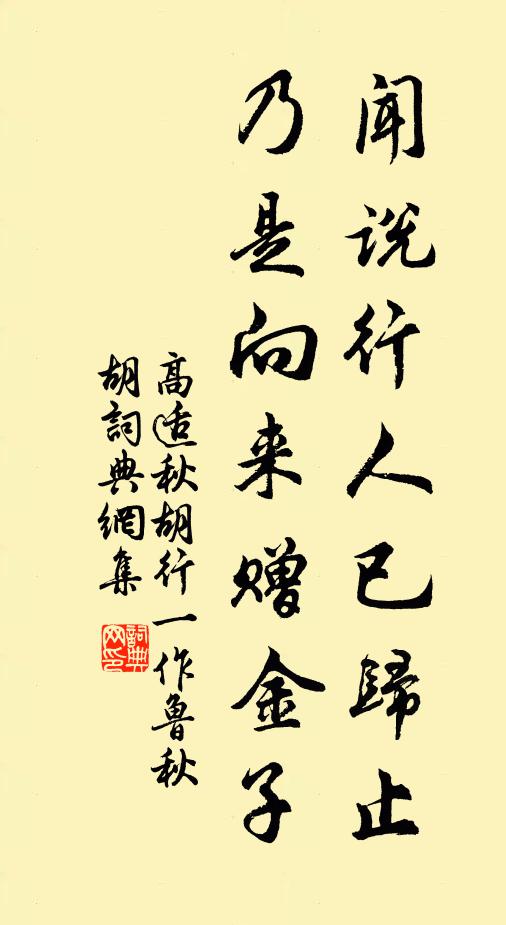 闻说行人已歸止
乃是向来赠金子
高适秋胡行一作魯秋
胡詞典網集
詞典网印